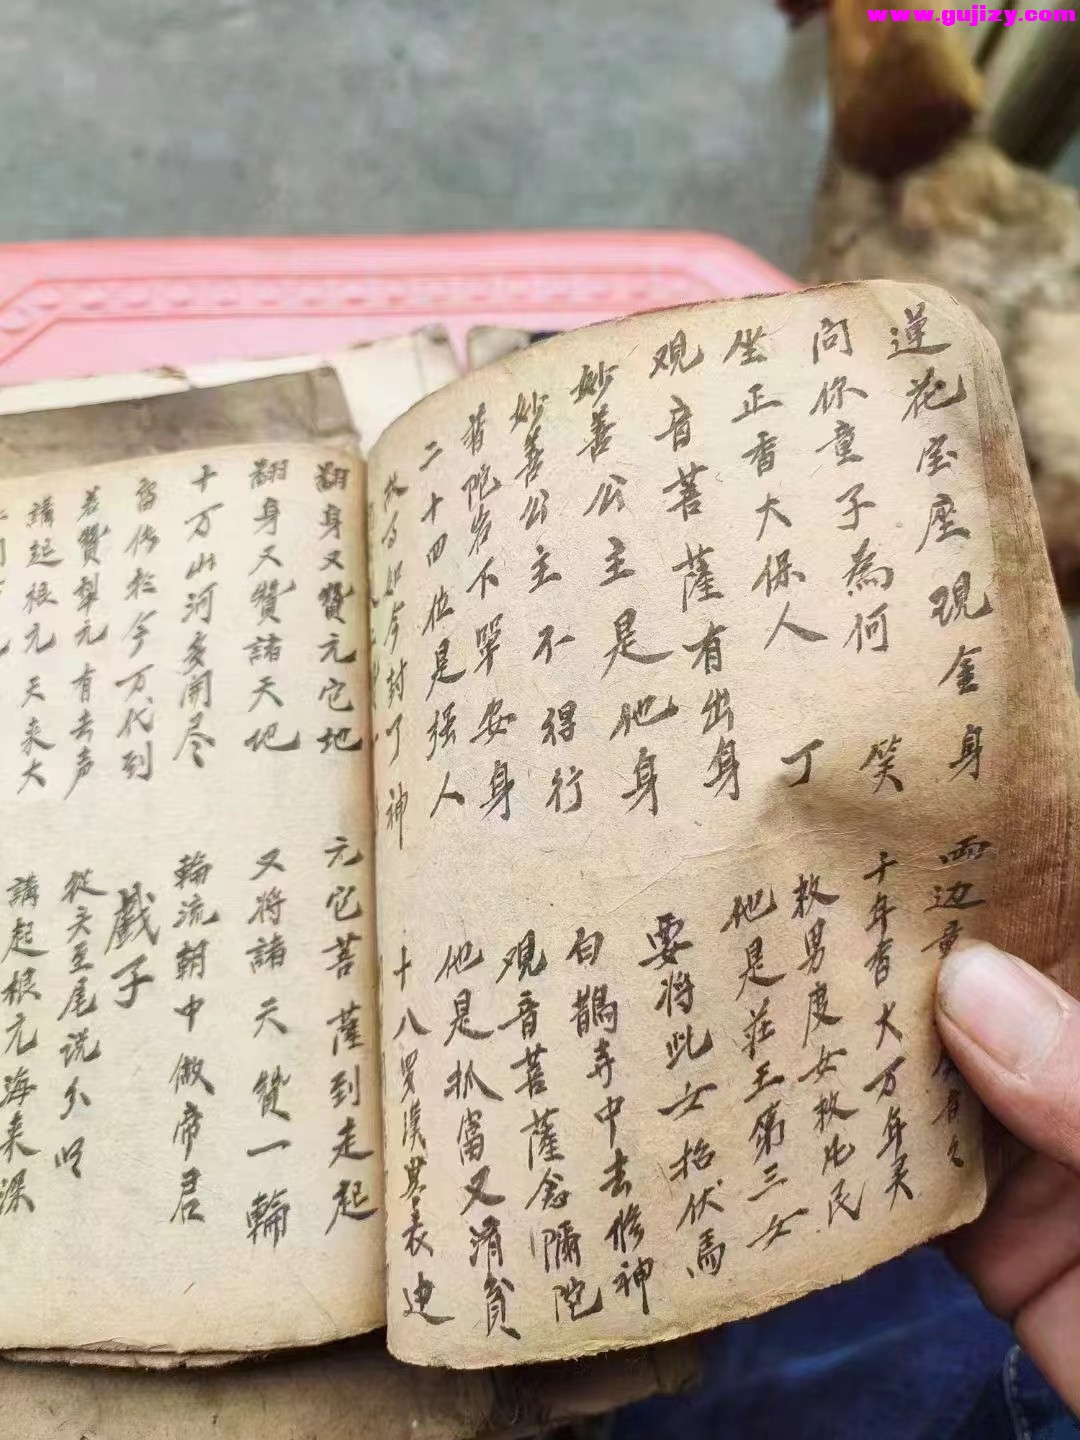 www.gujizy.com
蓮花宝座現金身 兩边童
问你童子為何笑 千年香火万年灵
坐正香大保人丁 救男度女救凡民
观音菩薩有出身 他是莊王第三女
妙善公主是他身 要将此女招伏馬
妙善公主不得行 白鵲寺中去修神
普陀岩下单安身 观音菩薩念隬陀
二十四位是强人 他是抓富又消貧
封了神 十八罗漢
翻身又贊元它地 元它菩薩到走起
翻身又贊諸天地 又将諸天贊一輪
十万山河多開尽 輪流朝中做帝君
留传於今万代到 戲子
若贊犁元有去声 從头至尾说分明
講起根元天来大 講起根元海来深